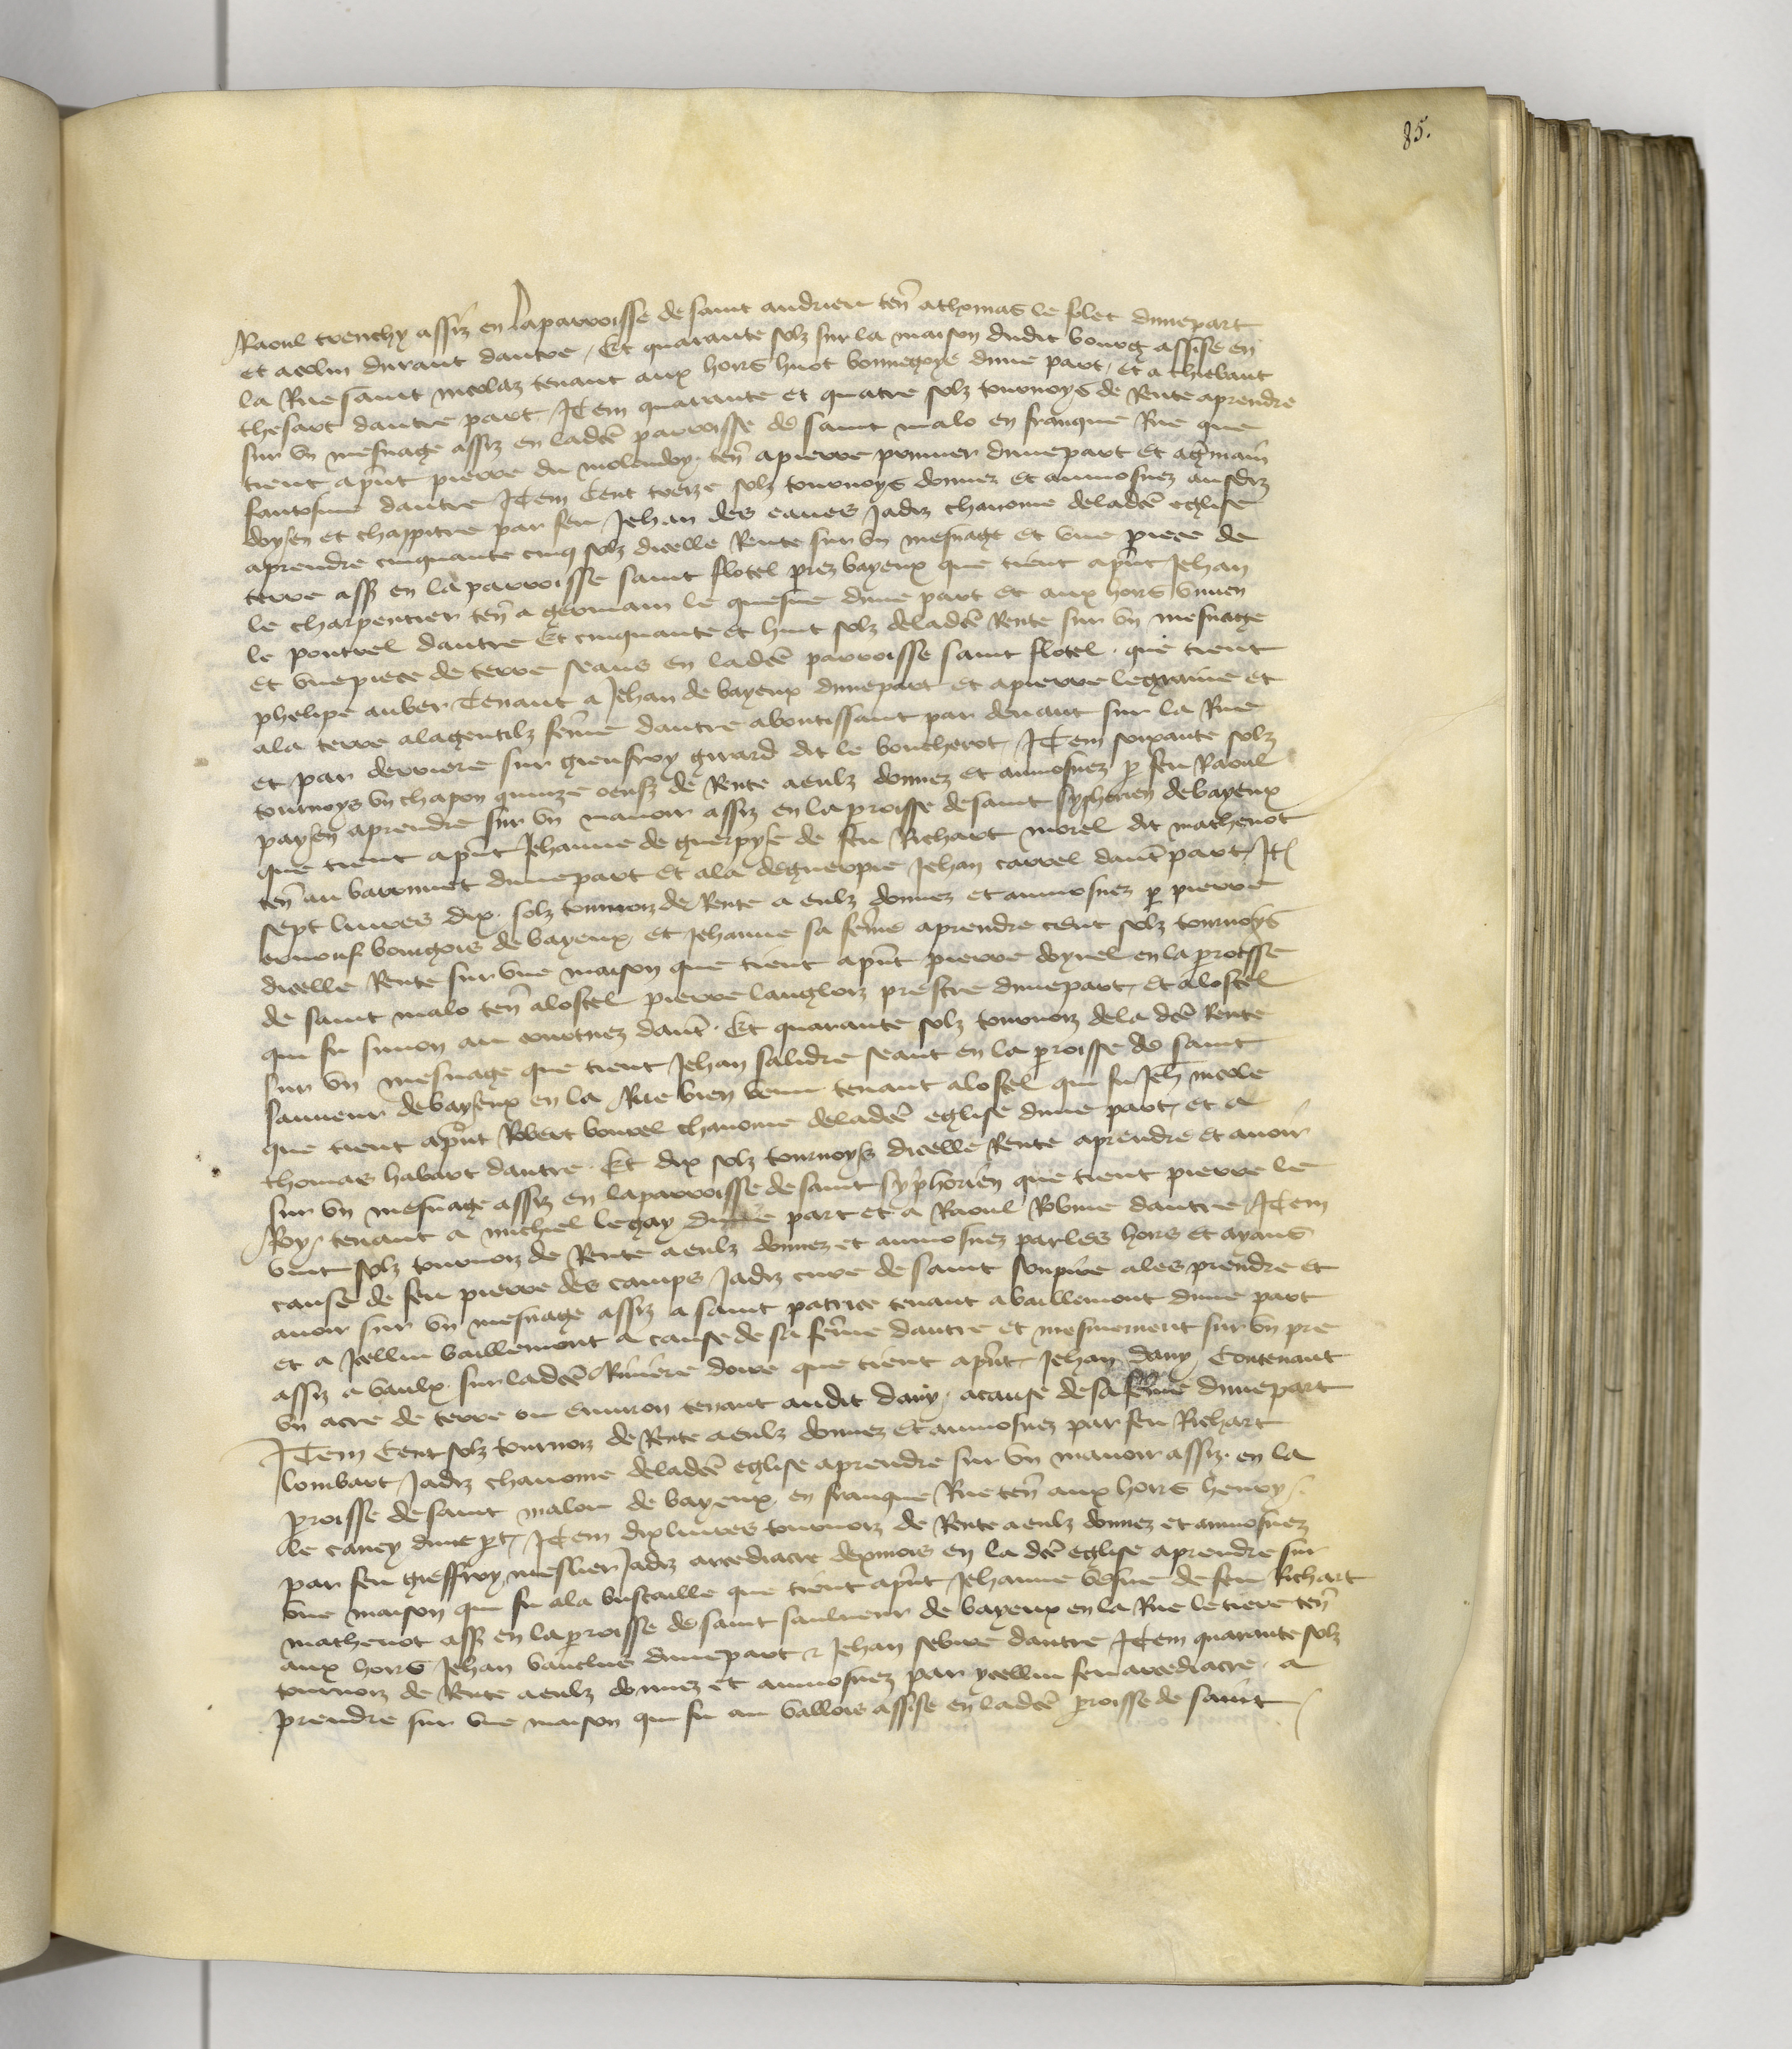 85.
Raoul trenchy assiz en laparroisse de saint andrieu ten̄ athomas le folet dunepart
et acolin durant dautre / Et quarante solz sur la maison dudit bourg assise en
la Rue saint nicolaz tenant aux hoirs huot bonnegoye dune part / et a thiebaut
thesart dautre part / Item quarante et quatre solz tournoys de Rente aprendre
sur vn mesnage assiz en ladc̄e parroisse de saint malo en franque Rue que
tient apn̄t pierre du molendry / ten̄ apierre prunier dunepart et ag̃main
fantosme dautre Item Cent treize solz tournoys donnez et aumosnez ausdiz
doyen et chappitre par feu Jehan des eaues Jadiz chanoine deladc̄e eglise
aprendre cinquante cinq solz dicelle Rente sur vn mesnage et vne piece de
terre assz en la parroisse saint flotel prez bayeux que tient apn̄t Jehan
le charpentier ten̄ a germain le quesne dune part et aux hoirs
le pontrel dautre Et cinquante et huit solz deladc̄e Rente sur vn mesnage
et vnepiece de terre seans en ladc̄e parroisse saint flotel . que tient
phelipe auber Tenant a Jehan de bayeux dunepart et apierre legraine et
ala terre alagentilz fem̄e dautre aboutissant par deuant sur la Rue
et par derriere sur gieufroy girard dit le boucherot / Item soixante solz
tournoys vn chapon quinze oeufz de Rente aeulz donnez et aumosnez p̱ feu Raoul
paysen aprendre sur vn manoir assiz en lap̱roisse desaint sypherien debayeux
que tient apn̄t Jehanne de guerpye de feu Richart morel dit mathenot
ten̄ au baronnet dunepart et ala deguerpie Jehan carrel daut̃ part / It̃
sept liures dix solz tournoiz de Rente a eulz donnez et aumosnez p̱ pierre
ernouf bourgois de bayeux / et Jehanne sa fem̄e aprendre cent solz tournoys
dicelle Rente sur vne maison que tient apn̄t pierre doynel en la p̱roisse
de saint malo ten̄ alostel pierre langloiz prestre dunepart / et alostel
qui fu simon au daut̃ . Et quarante solz tournoiz dela dc̄e Rente
sur vn mesnage que tient Jehan salidre seant en la p̱roisse de saint
sauueur debayeux en la Rue bien venu tenant alostel qui fu Jeh̄ nicole
que tient apn̄t Robert bourel chanoine deladc̄e eglise dune part / et a
thomas habart dautre . Et dix solz tournoys dicelle Rente aprendre et auoir
sur vn mesnage assiz en laparroisse de saint syphorien que tient pierre le
Roy / tenant a michiel legay dune part et a Raoul Robine dautre Item
vint solz tournoiz de Rente aeulz donnez et aumosnez parles hoirs et ayans
cause de feu pierre des camps Jadiz cure de saint soupire ales prendre et
auoir sur vn mesnage assiz a saint patrice tenant abaillemont dune part
et a Jcellui baillemont a cause de sa fem̄e dautre et mesmement sur vn pre
assiz a vaulx . sur ladc̄e Riuiere dorre que tient apn̄t Jehan dauy / Contenant
vn acre de terre ou enuiron tenant audit dauy / acause desa fem̄e dunepart
Item Cent solz tournoiz de Rente aeulz donnez et aumosnez par feu Richart
lombart / Jadiz chanoine deladc̄e eglise aprendre sur vn manoir assiz . en la
p̱roisse desaint malou de bayeux . en franque Rue ten̄ aux hoirs henry /
le caney dune p̱t / Item dix liures tournoiz de Rente aeulz donnez et aumosnez
par feu gieffroy meslier Jadiz arcediacre dexmois en la dc̄e eglise aprendre sur
vne maison qui fu ala bustaille que tient apn̄t Jehanne vesue de feu Richart
mathenot assz en lap̱roisse de saint saulueur de bayeux en la Rue letiere ten̄
aux hoirs Jehan vauclus dunepart & Jehan sebire dautre Item quarante solz
tournoiz de Rente aeulz donnez et aumosnez par ycellui feu arcediacre . a
prendre sur vne maison qui fu au vallois assise en ladc̄e p̱roisse de saint